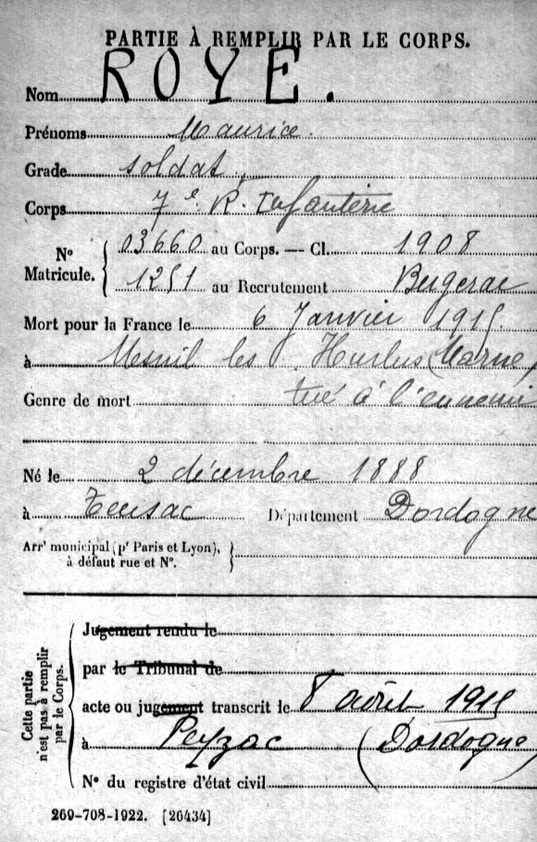 PARTIE À REMPLIR PAR LE CORPS.
Nom ROYE.
Prénoms Maurice.
Grade soldat
Corps 7e R. Infanterie
N° Matricule. 03660 au Corps. — Cl. 1908
1251 au Recrutement Bergerac
Mort pour la France le 6 Janvier 1915.
à Mesnil les Hurlus (Marne)
Genre de mort tué à l'ennemi
Né le 2 décembre 1888
à Département Dordogne
Arrt municipal (pr Paris et Lyon),
à défaut rue et N°.
Cette partie n'est pas à remplir par le Corps.
Jugement rendu le
par le Tribunal de
acte ou jugement transcrit le 8 août 1915
à Peyzac (Dordogne)
N° du registre d'état civil
269-708-1922. [26434]